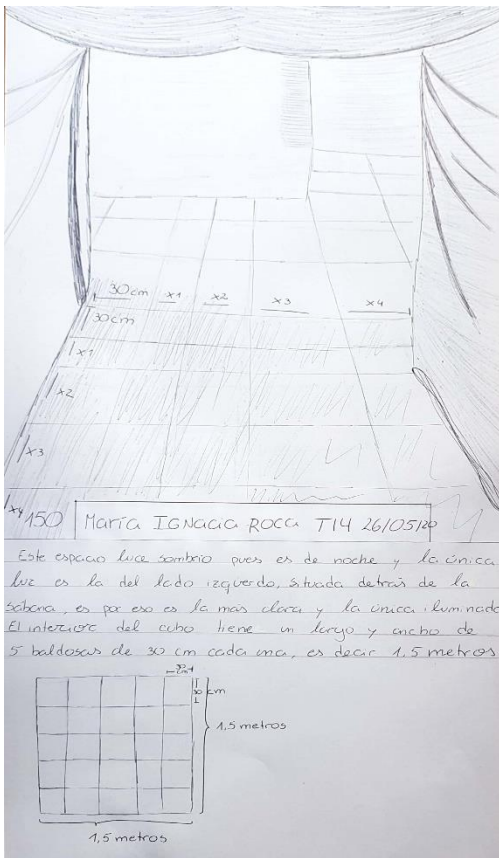 30cm x1 x2 x3 x4
30cm
x1
x2
x3
x4 150
María IGNACIA ROCA T14 26/05/20
Este espacio luce sombrio pues es de noche y la única
luz es la del lado izquerdo, situada detras de la
sabana, es por eso es la más clara y la única iluminada
El interior del cubo tiene un largo y ancho de
5 baldosas de 30 cm cada una, es decir 1,5 metros
30 cm
30 cm
1,5 metros
1,5 metros